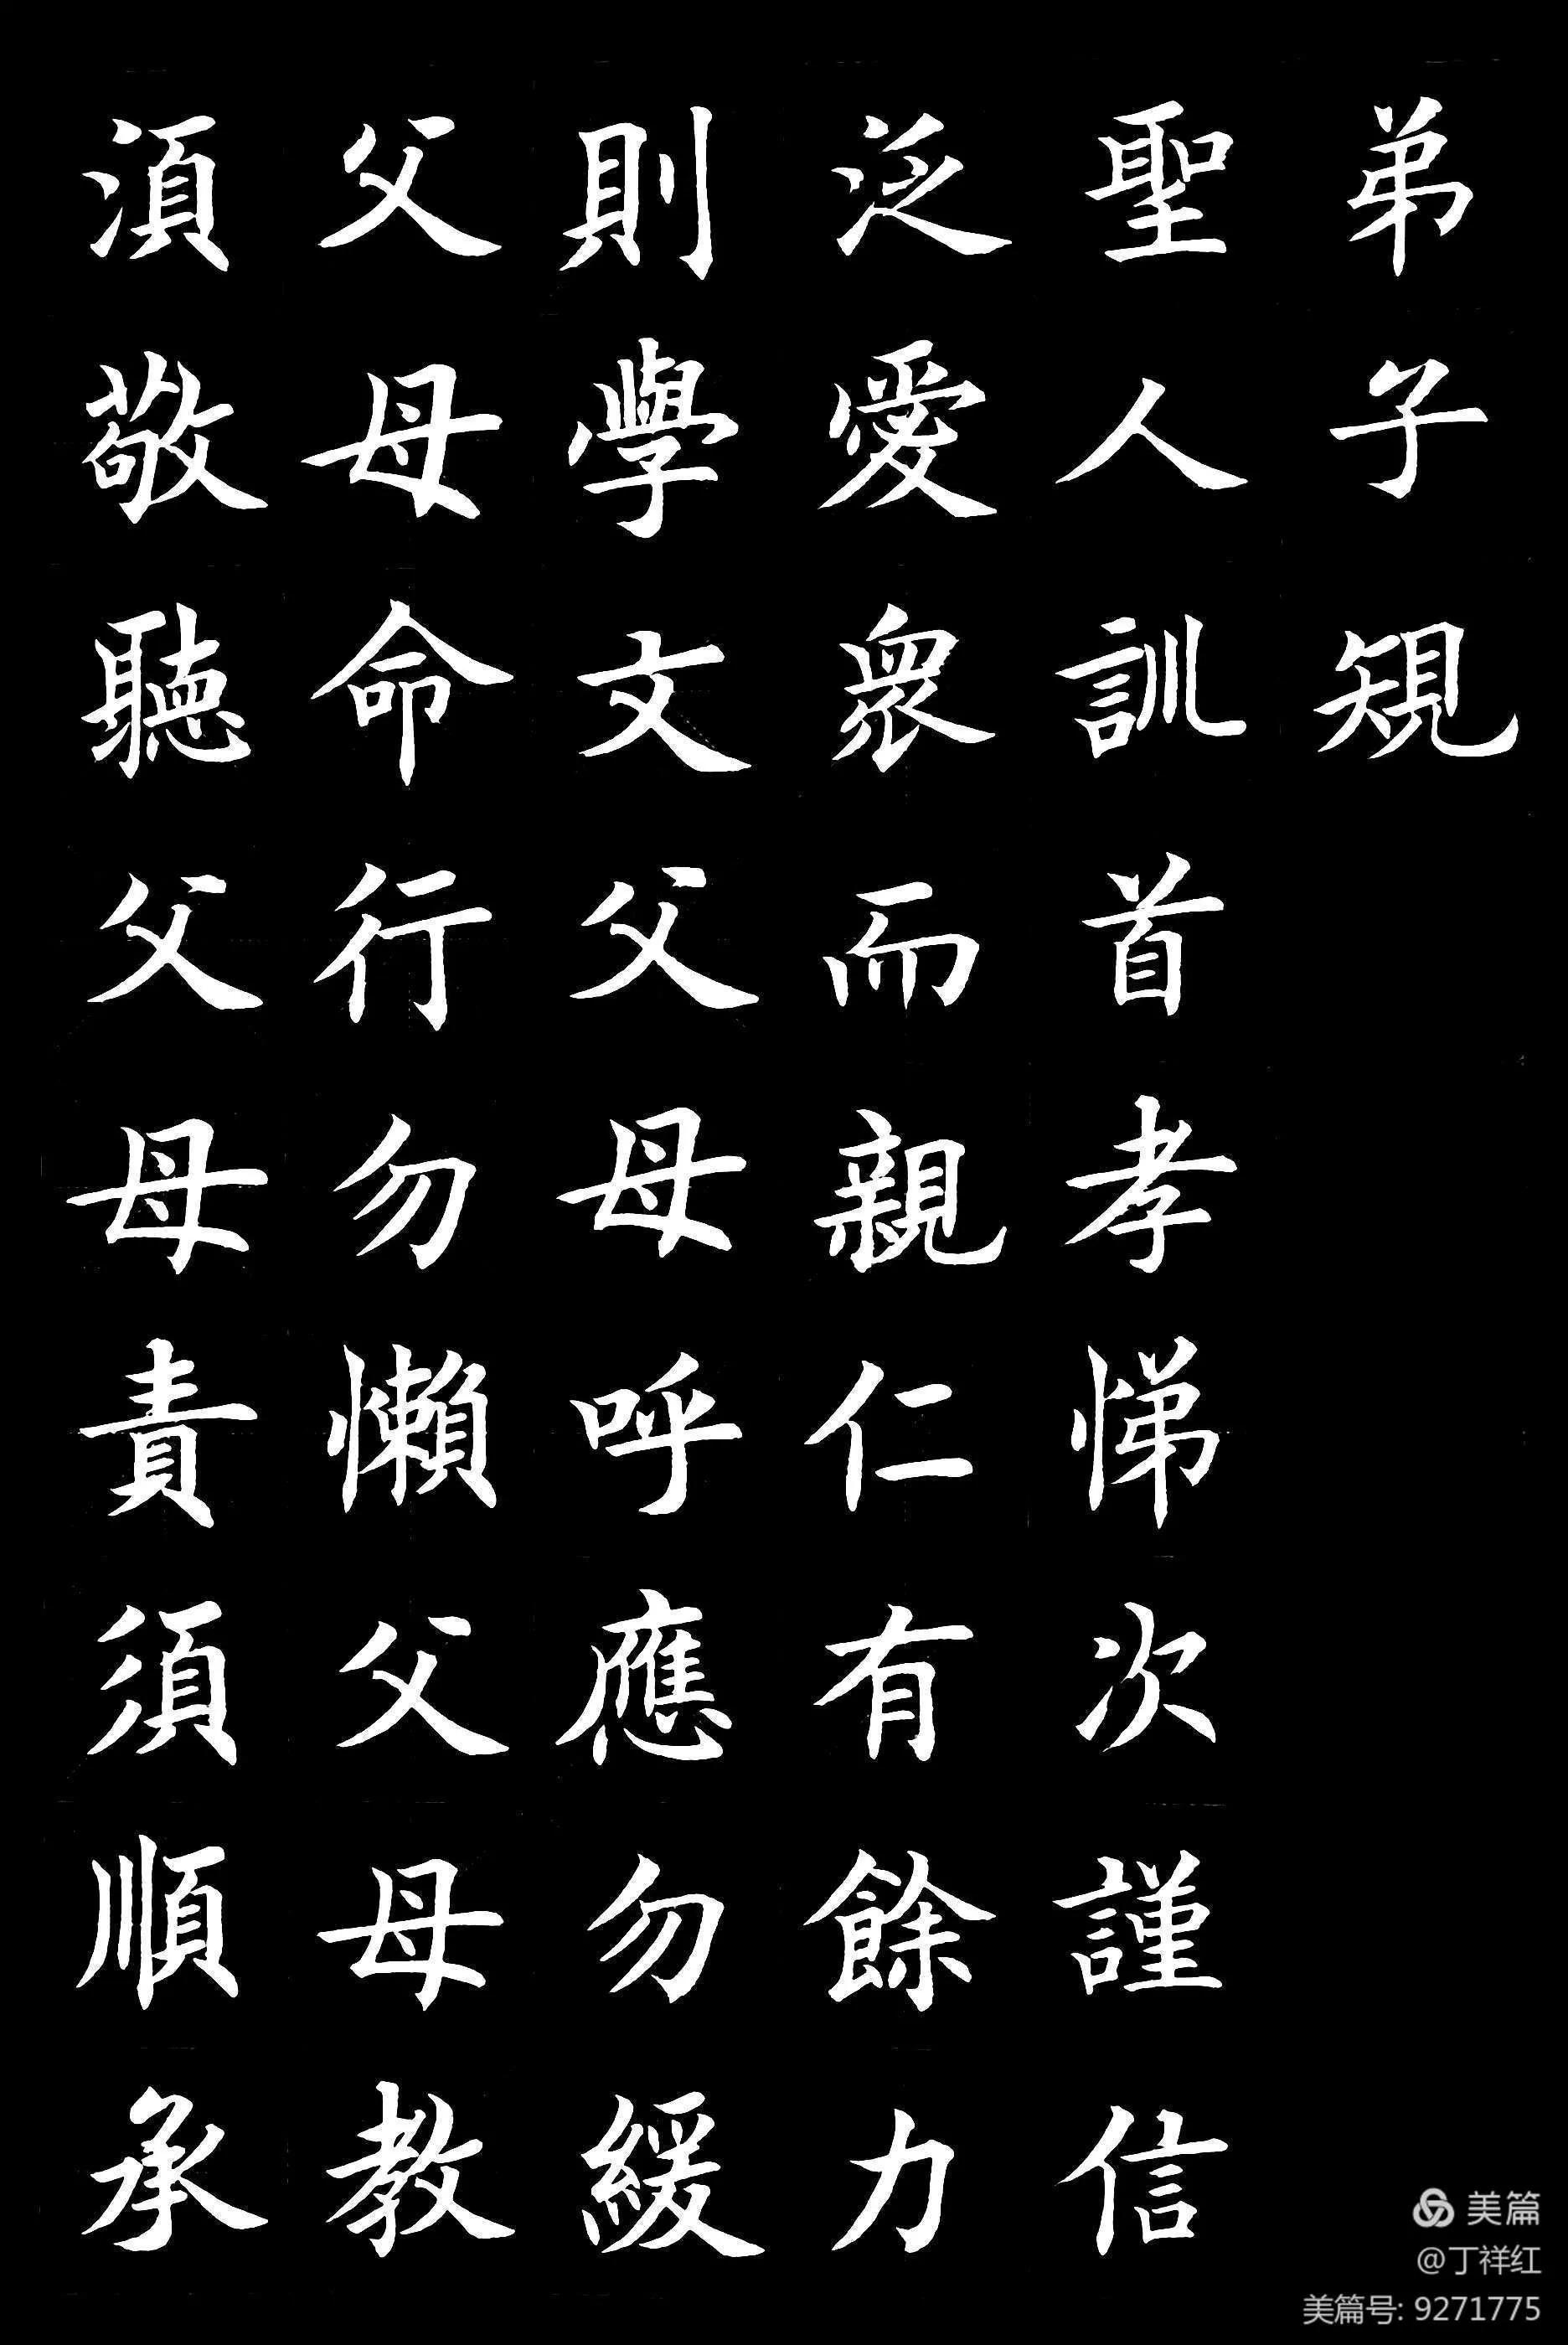 弟子規
聖人訓首孝悌次謹信
泛愛衆而親仁有餘力
則學文父母呼應勿緩
父母命行勿懶父母教
湏敬聽父母責須順承
美篇
@丁祥红
美篇号: 9271775